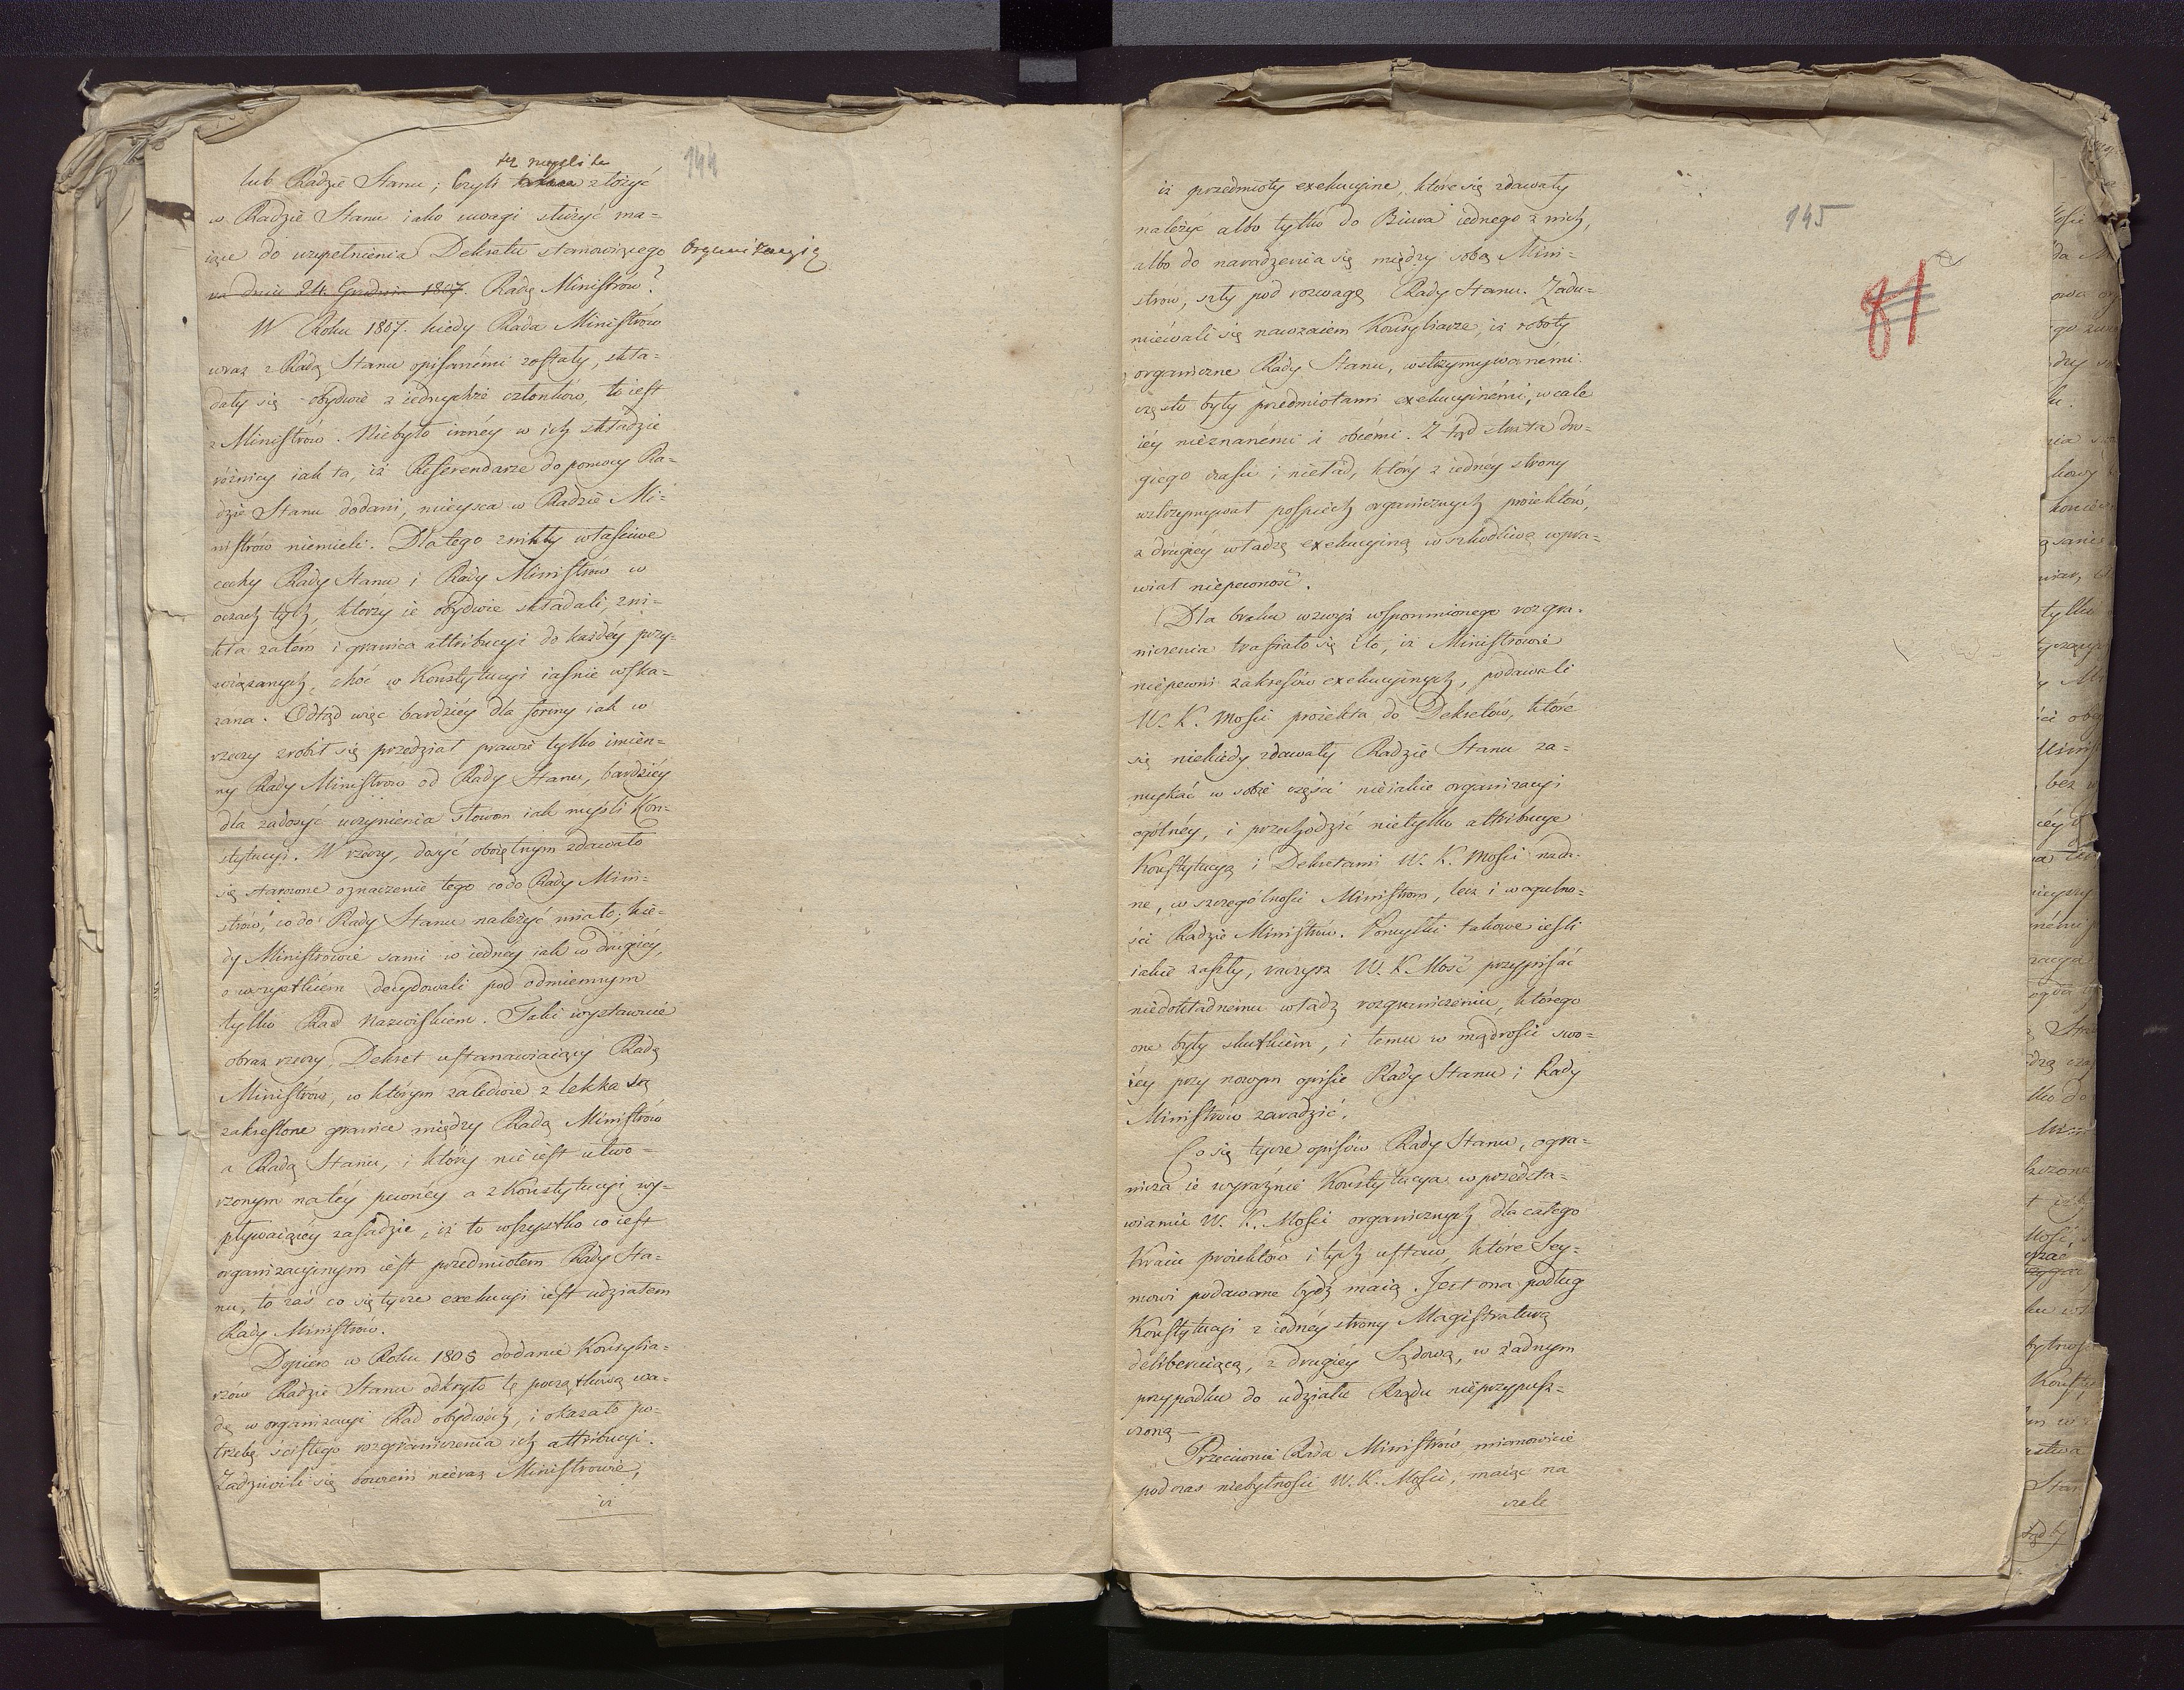 144
tę myśl ta
lub Radzie Stanu; Czyli złożyć
w Radzie Stanu iako uwagi służyć ma=
iące do uzupełnienia Dekretu stanowiącego Organizacyią
na dniu 24. Grudnia 1807. Radę Ministrów?
W Roku 1807. kiedy Rada Ministrów
wraz z Radą Stanu opisanémi zostały, skła=
dały się obydwie z iednychże członków, to iest
z Ministrów. Niebyło innéy w ich składzie
różnicy iak ta, iż Referendarze do pomocy Ra=
dzie Stanu dodani, mieysca w Radzie Mi=
nistrów niemieli. Dlatego znikły właściwe
cechy Rady Stanu i Rady Ministrów w
oczach tych, którzy ie obydwie składali, zni=
kła zatém i granica attribucyi do każdéy przy=
wiązanych, choć w Konstytucyi iaśnie wska=
zana. Odtąd więc bardziéy dla formy iak w
rzeczy zrobił się przedział prawie tylko imien=
ny Rady Ministrów od Rady Stanu, bardziéy
dla zadosyć uczynienia słowom iak myśli Kon=
stytucyi. W rzeczy, dosyć oboiętnym zdawało
się staranne oznaczenie tego co do Rady Mini=
strów, co do Rady Stanu należyć miało; kie=
dy Ministrowie sami w iednéy iak w drugiéy,
o wszystkiém decydowali pod odmiennym
tylko Rad nazwiskiem. Taki wystawuie
obraz rzeczy Dekret ustanawiaiący Radę
Ministrów, w którym zaledwie z lekka są
zakreślone granice między Radą Ministrów
a Radą Stanu, i który nie iest utwo=
rzonym na téy pewnéy a z Konstytucyi wy=
pływaiącéy zasadzie, iż to wszystko co iest
organizacyinym iest przedmiotem Rady Sta=
nu, to zaś co się tycze exekucyi iest udziałem
Rady Ministrów.
Dopiéro w Roku 1808 dodanie Konsylia=
rzów Radzie Stanu odkryło tę początkową wa=
dę w organizacyi Rad obydwóch, i okazało po=
trzebę ścisłego rozgraniczenia ich attribucyi.
Zadziwili się bowiem nieraz Ministrowie,
iż
145
81
iż przedmioty exekucyine, które się zdawały
należyć albo tylko do Biura iednego z nich,
albo do naradzenia się między sobą Mini=
strów, szły pod rozwagę Rady Stanu. Zadu=
miéwali się nawzaiem Konsyliarze, iż roboty
organiczne Rady Stanu, wstrzymywanémi
często były przedmiotami exekucyinémi, wcale
iéy nieznanémi i obcémi. Z tąd strata dro=
giego czasu i nieład, który z iednéy strony
wstrzymywał pośpiech organicznych proiektów,
z drugiéy władzę exekucyiną w szkodliwą wpra=
wiał niepewność.
Dla braku wzwyż wspomnionego rozgra=
niczenia trafiało się i to, iż Ministrowie
niepewni zakresów exekucyinych, podawali
W. K. Mości proiekta do Dekretów, które
się niekiedy zdawały Radzie Stanu za=
mykać w sobie części nieiakie organizacyi
ogólnéy, i przechodzić nietylko attribucye
Konstytucyą i Dekretami W. K. Mości nada=
ne, w szczególności Ministrom, lecz i w ogulno=
ści Radzie Ministrów. Pomyłki takowe ieśli
iakie zaszły, raczysz W. K. Mość przypisać
niedokładnemu władz rozgraniczeniu, którego
one były skutkiem, i temu w mądrości swo=
iéy przy nowym opisie Rady Stanu i Rady
Ministrów zaradzić.
Co się tycze opisów Rady Stanu, ogra=
nicza ie wyraźnie Konstytucya w przedsta=
wianiu W. K. Mości organicznych dla całego
Kraiu proiektów i tych ustaw, które Sey=
mowi podawane bydź maią. Jest ona podług
Konstytucyi z iednéy strony Magistraturą
deliberuiącą, z drugiéy Sądową, w żadnym
przypadku do udziału Rządu nieprzypusz=
czoną —
Przeciwnie Rada Ministrów, mianowicie
podczas niebytności W. K. Mości, maiąc na
czele